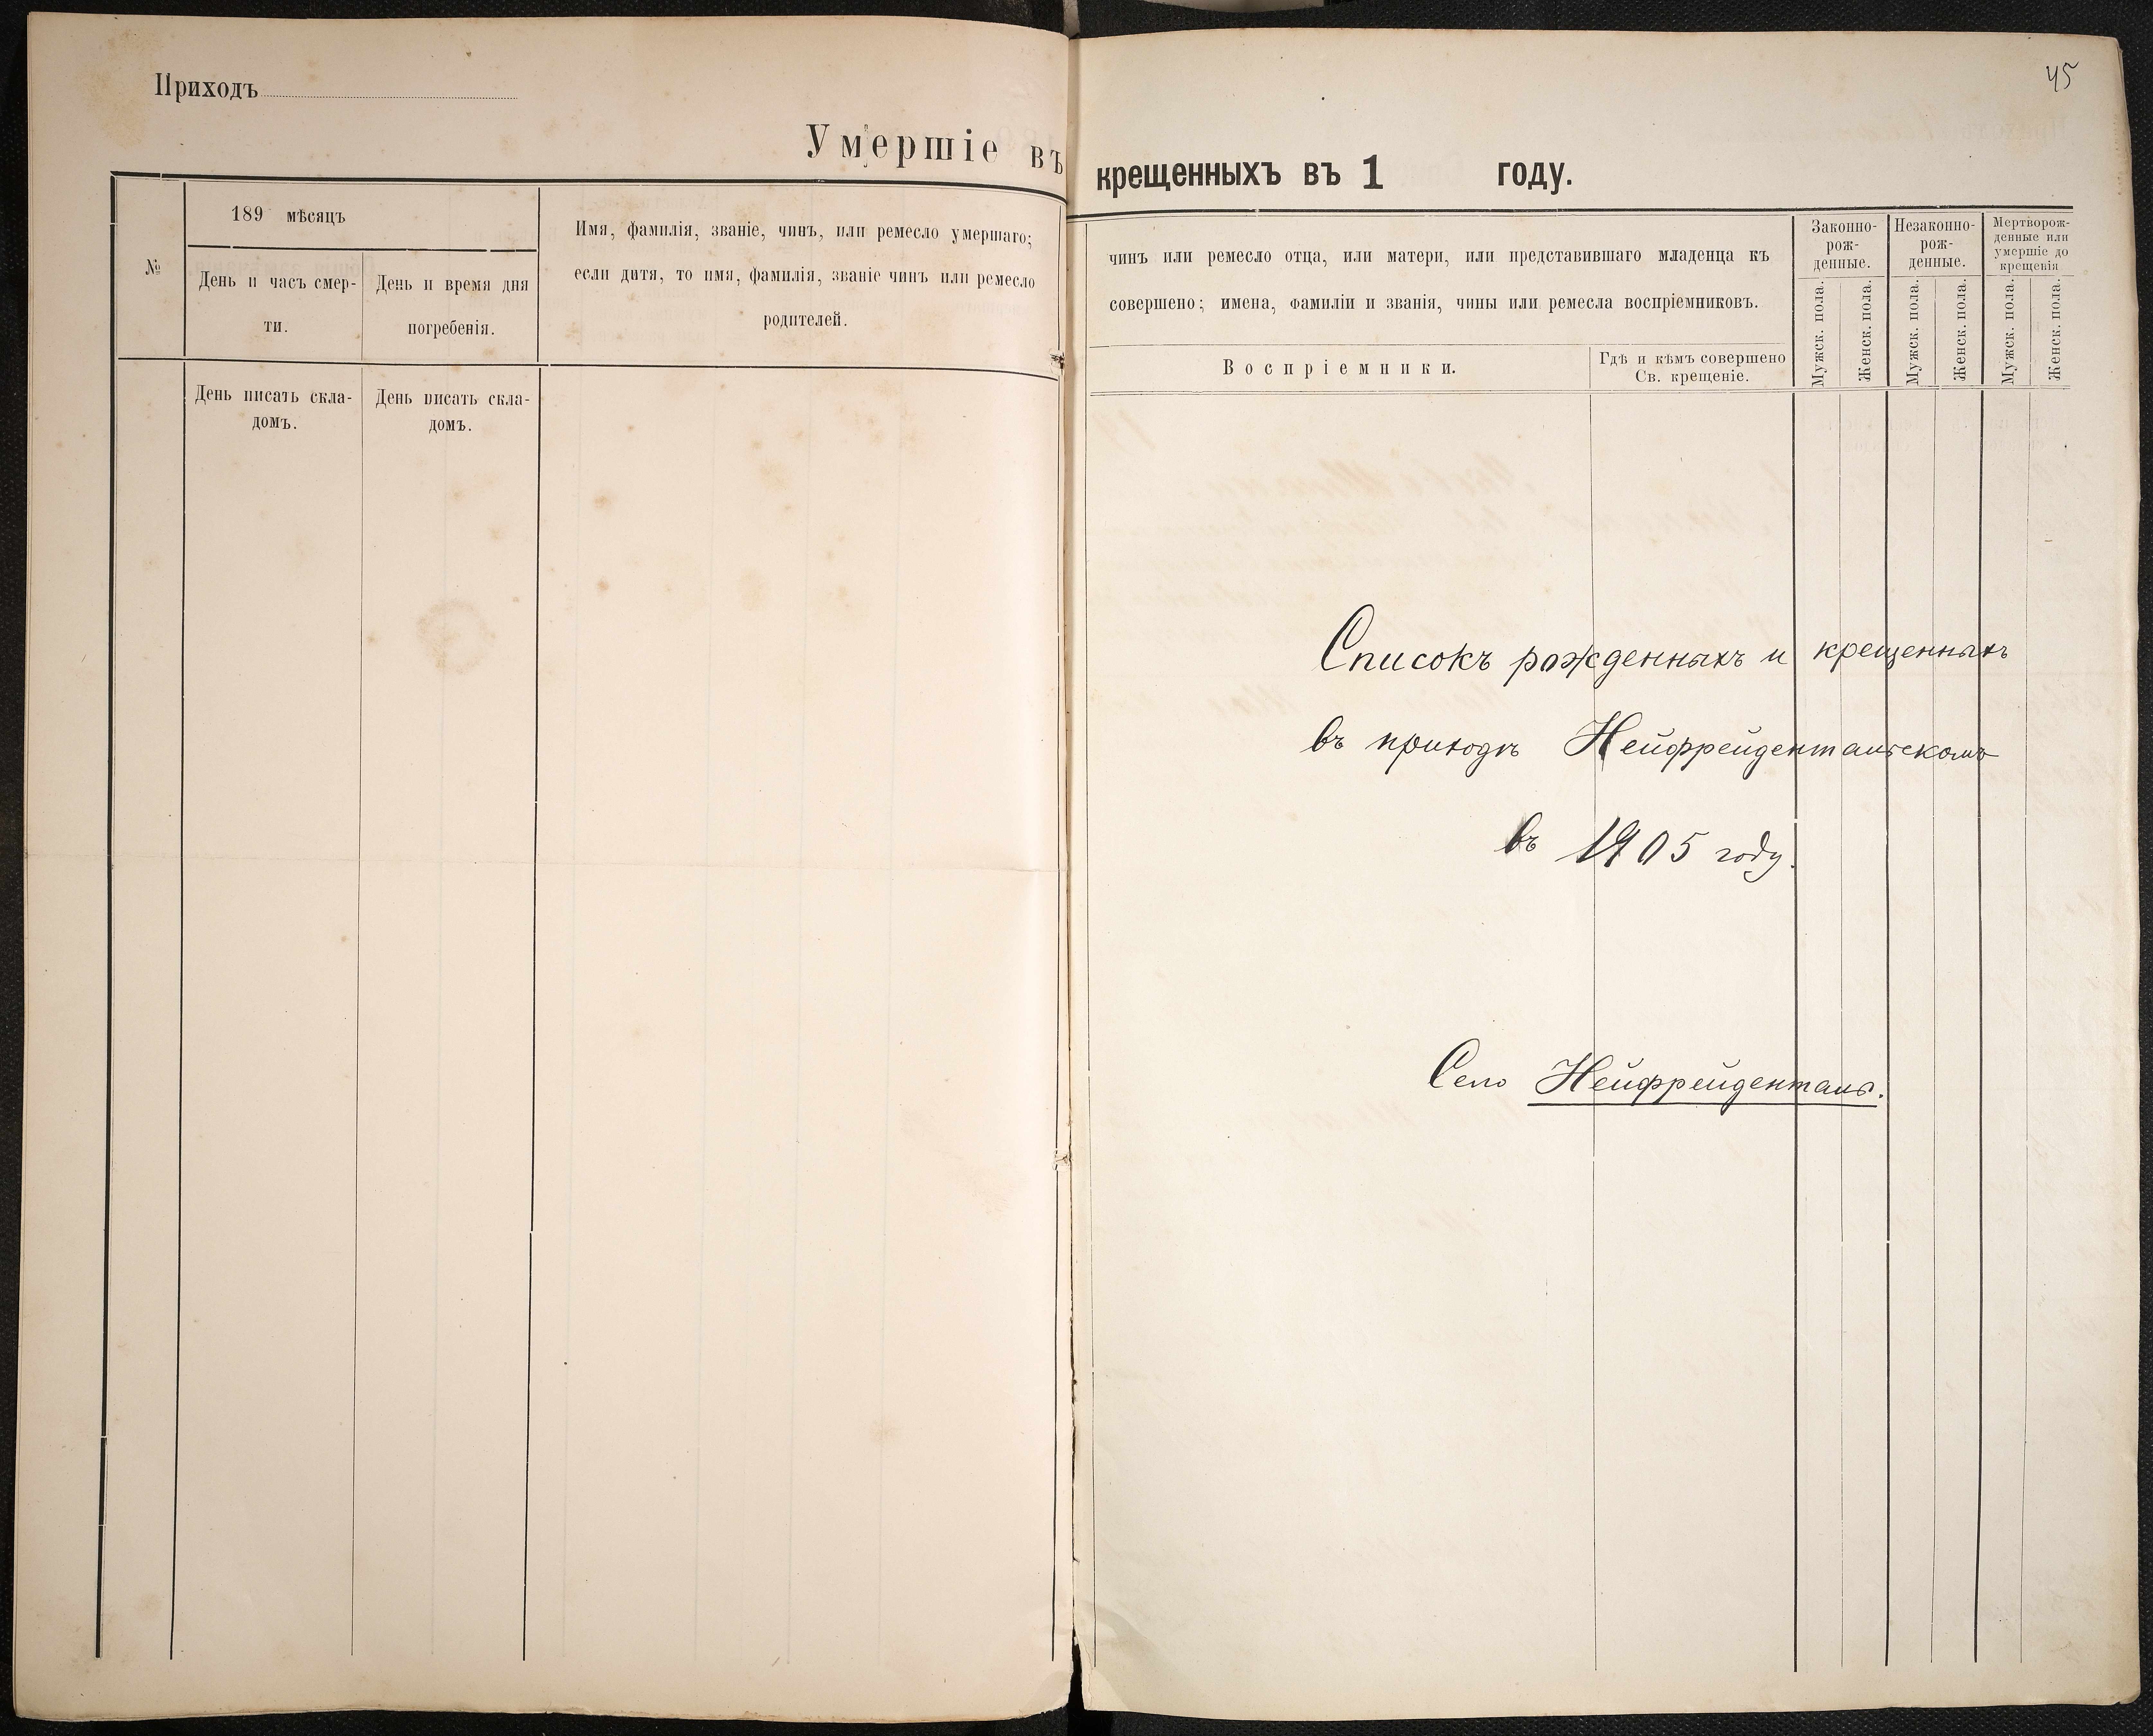 Приходъ
Умершіе въ
№
189 мѣсяцъ
День и часъ смер-
ти.
День и время дня
погребенія.
Имя, фамилія, званіе, чинъ, или ремесло умершаго;
если дитя, то имя, фамилія, званіе чинъ или ремесло
родителей.
День писать скла-
домъ.
День писать скла-
домъ.
45
крещенныхъ въ 1 году.
чинъ или ремесло отца, или матери, или представившаго младенца къ
совершено; имена, фамиліи и званія, чины или ремесла воспріемниковъ.
Воспріемники.
Гдѣ и кѣмъ совершено
Св. крещеніе.
Законно-
рож-
денные.
Незаконно-
рож-
денные.
Мертворож-
денные или
умершіе до
крещенія
Мужск. пола.
Женск. пола.
Мужск. пола.
Женск. пола.
Мужск. пола.
Женск. пола.
Списокъ рожденныхъ и крещенныхъ
въ приходѣ Нейфрейдентальскомъ
въ 1905 году.
Село Нейфрейденталь.